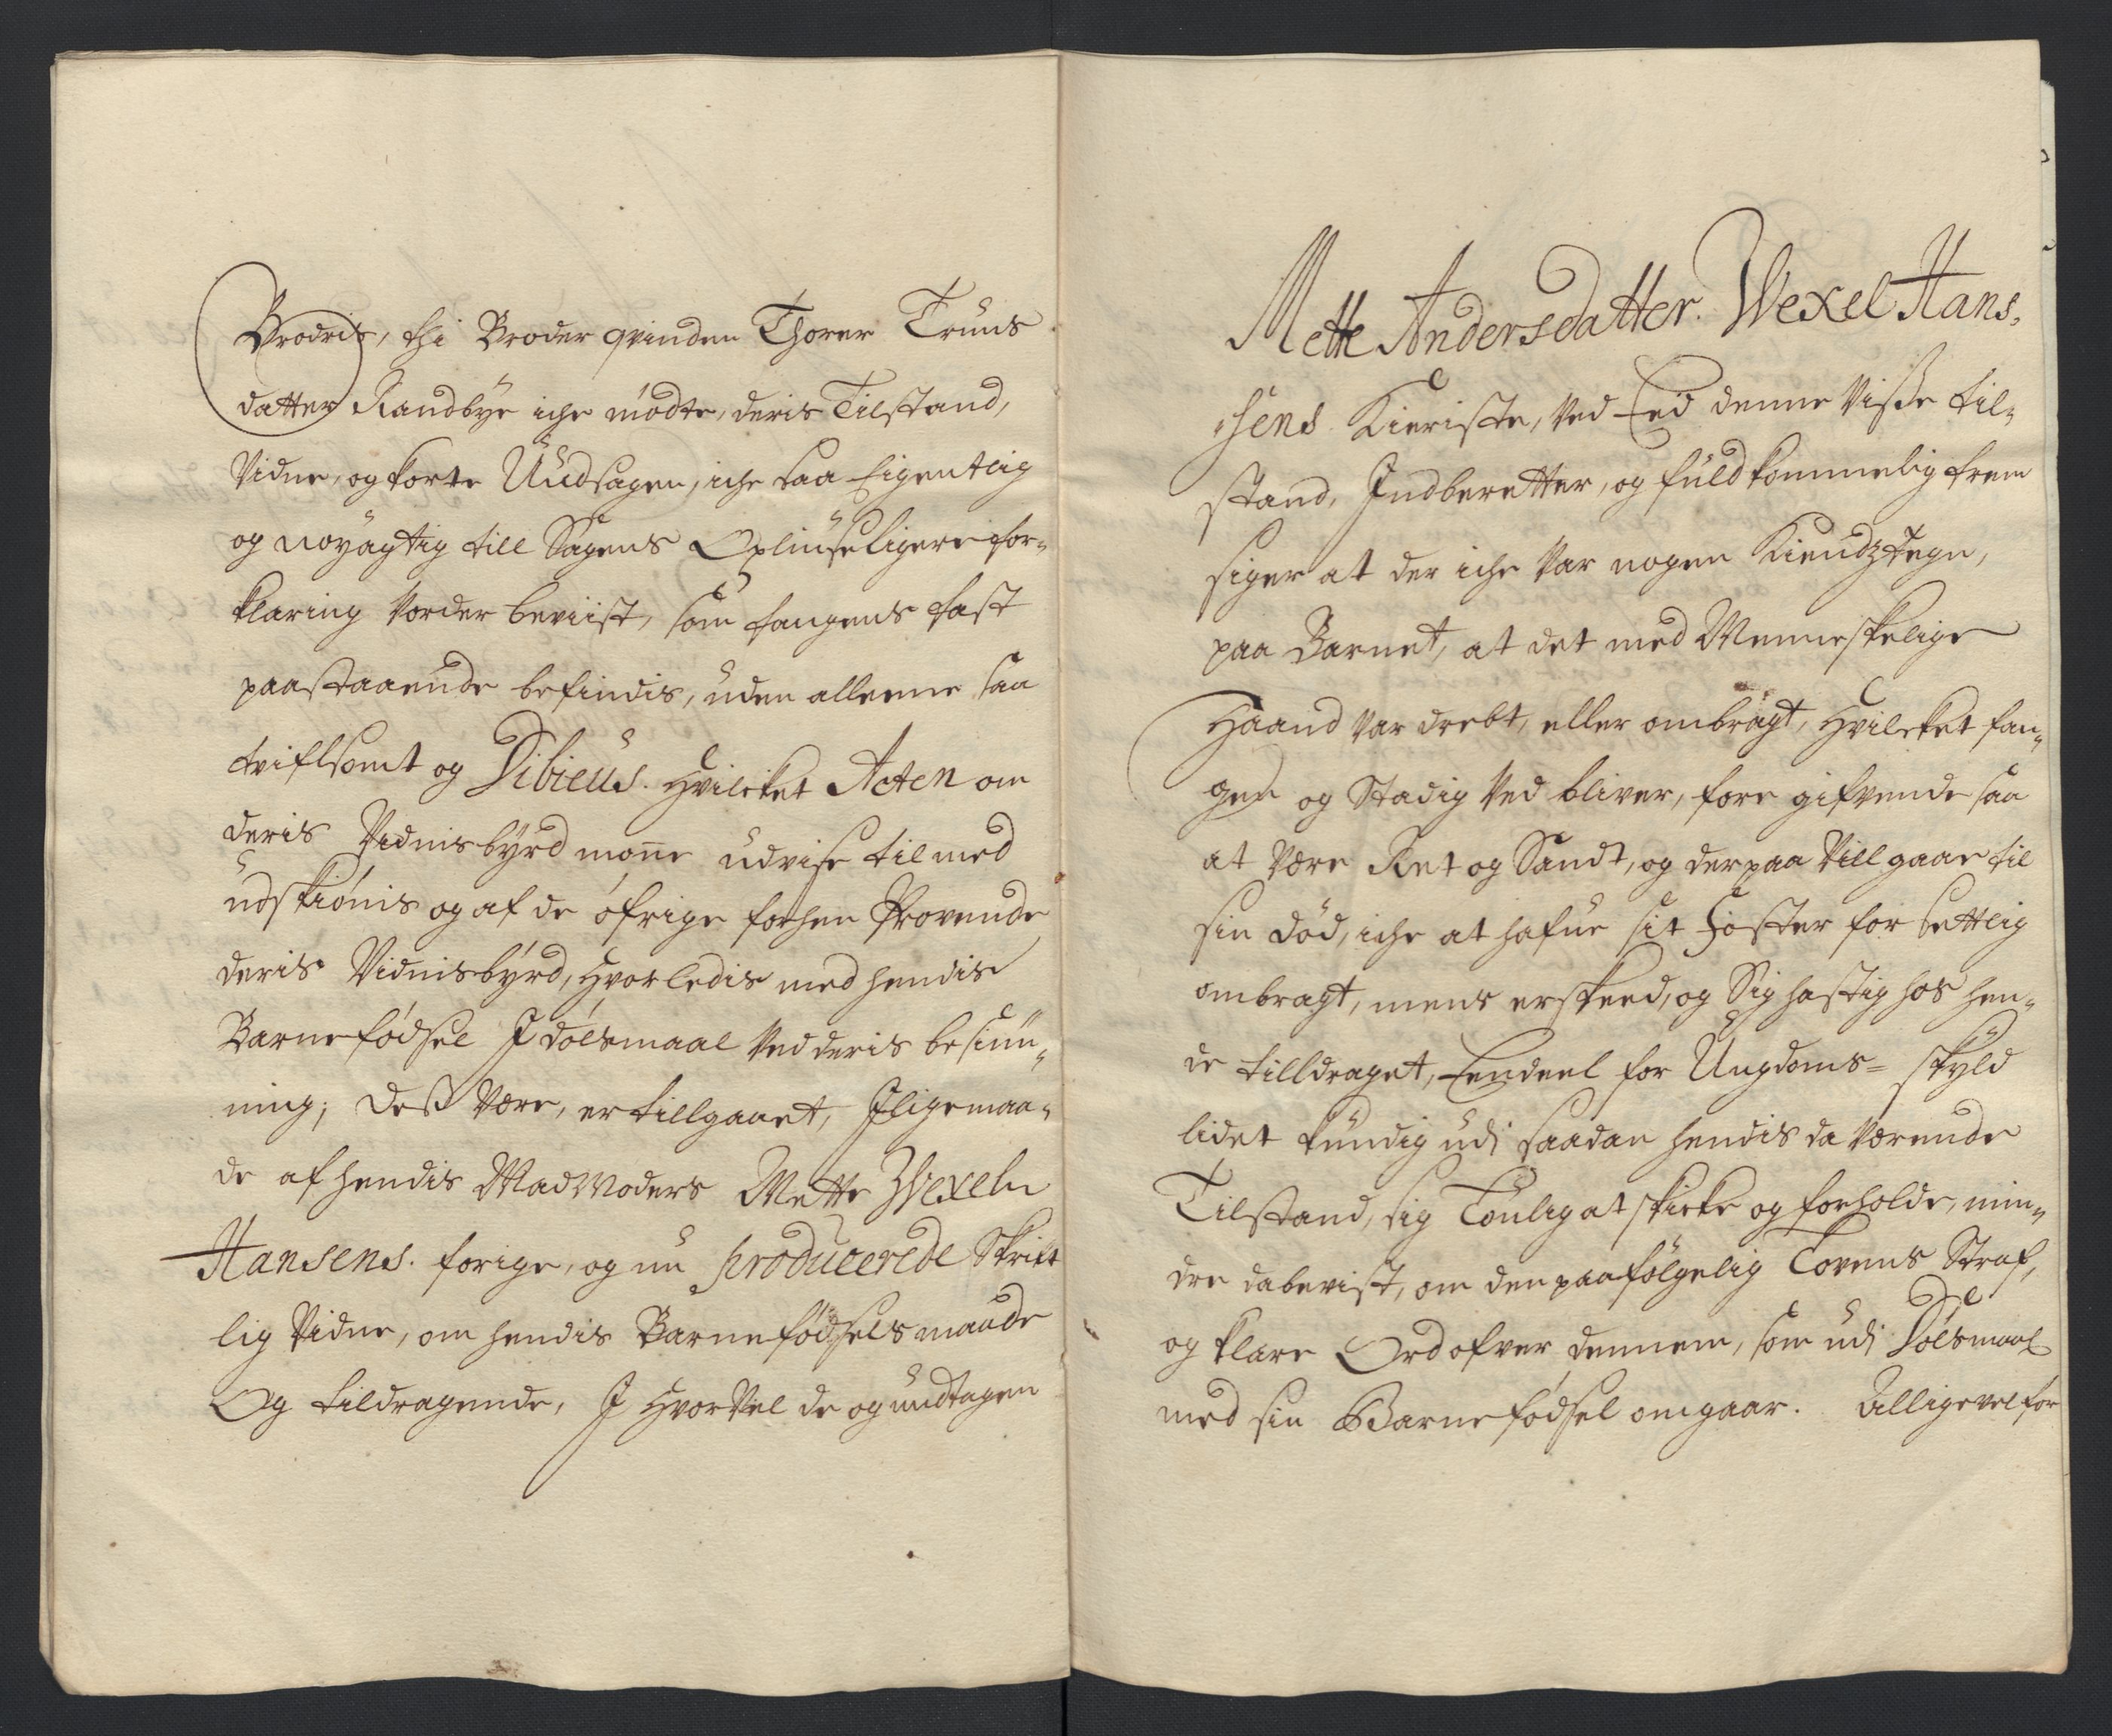 Brodris, thi Broder qvinden Thorer Truns
datter Randbye iche mødte, deris Tilstand,
Vidne, og korte Uudsagen, iche saa Eigentlig
og nøyagtig till Sagens Opliuseligere for-
klaring vorder beviist, som fangens fast
paastaaende befindis, uden alleene saa
tviflsomt og Dibieus. Hvilcket Acten om
deris Vidnisbyrd mone udvise til med
udskiønis og af de øfrige forhen Provende
deris Vidnisbyrd, Hvorledis med hendis
Barnefødsel I dølsmaal Ved deris besiun-
ning; Dess være, er tillgaaet, Iligemaa-
de af hendis Madmoders Mette Wexeln
Hansens. forige, og nu producerede Skrift
lig Vidne, om hendis Barnefødsels maade
Og tildragende, I Hvor Vel de og undtagen
Mette Andersdatter. Wexel Hans-
sens Kieriste, Ved Eed denne Visse til-
stand, Indberetter, og fuldkommelig frem
siger at der iche Var nogen Kiendztegn,
paa Barnet, at det med Menneskelige
Haand Var drebt, eller ombragt, Hvilcket fan-
gen og Stadig Ved bliver, fore gifvende saa
at Være Ret og Sandt, og derpaa Vill gaae til
sin død, iche at hafue sit Foster forsettlig
ombragt, mens er skeed, og Sig hastig hos hen-
de tilldraget, Eendeel for Ungdoms= skyld
lidet kundig udi saadan hendis da Værende
Tilstand, sig Lonlig at skicke og forholde, min-
dre da bevist, om den paafølgelig Lovens Straf,
og klare Ord ofver dennem, som udi Dølsmaal
med sin Barnefødsel omgaar. Alligevel for